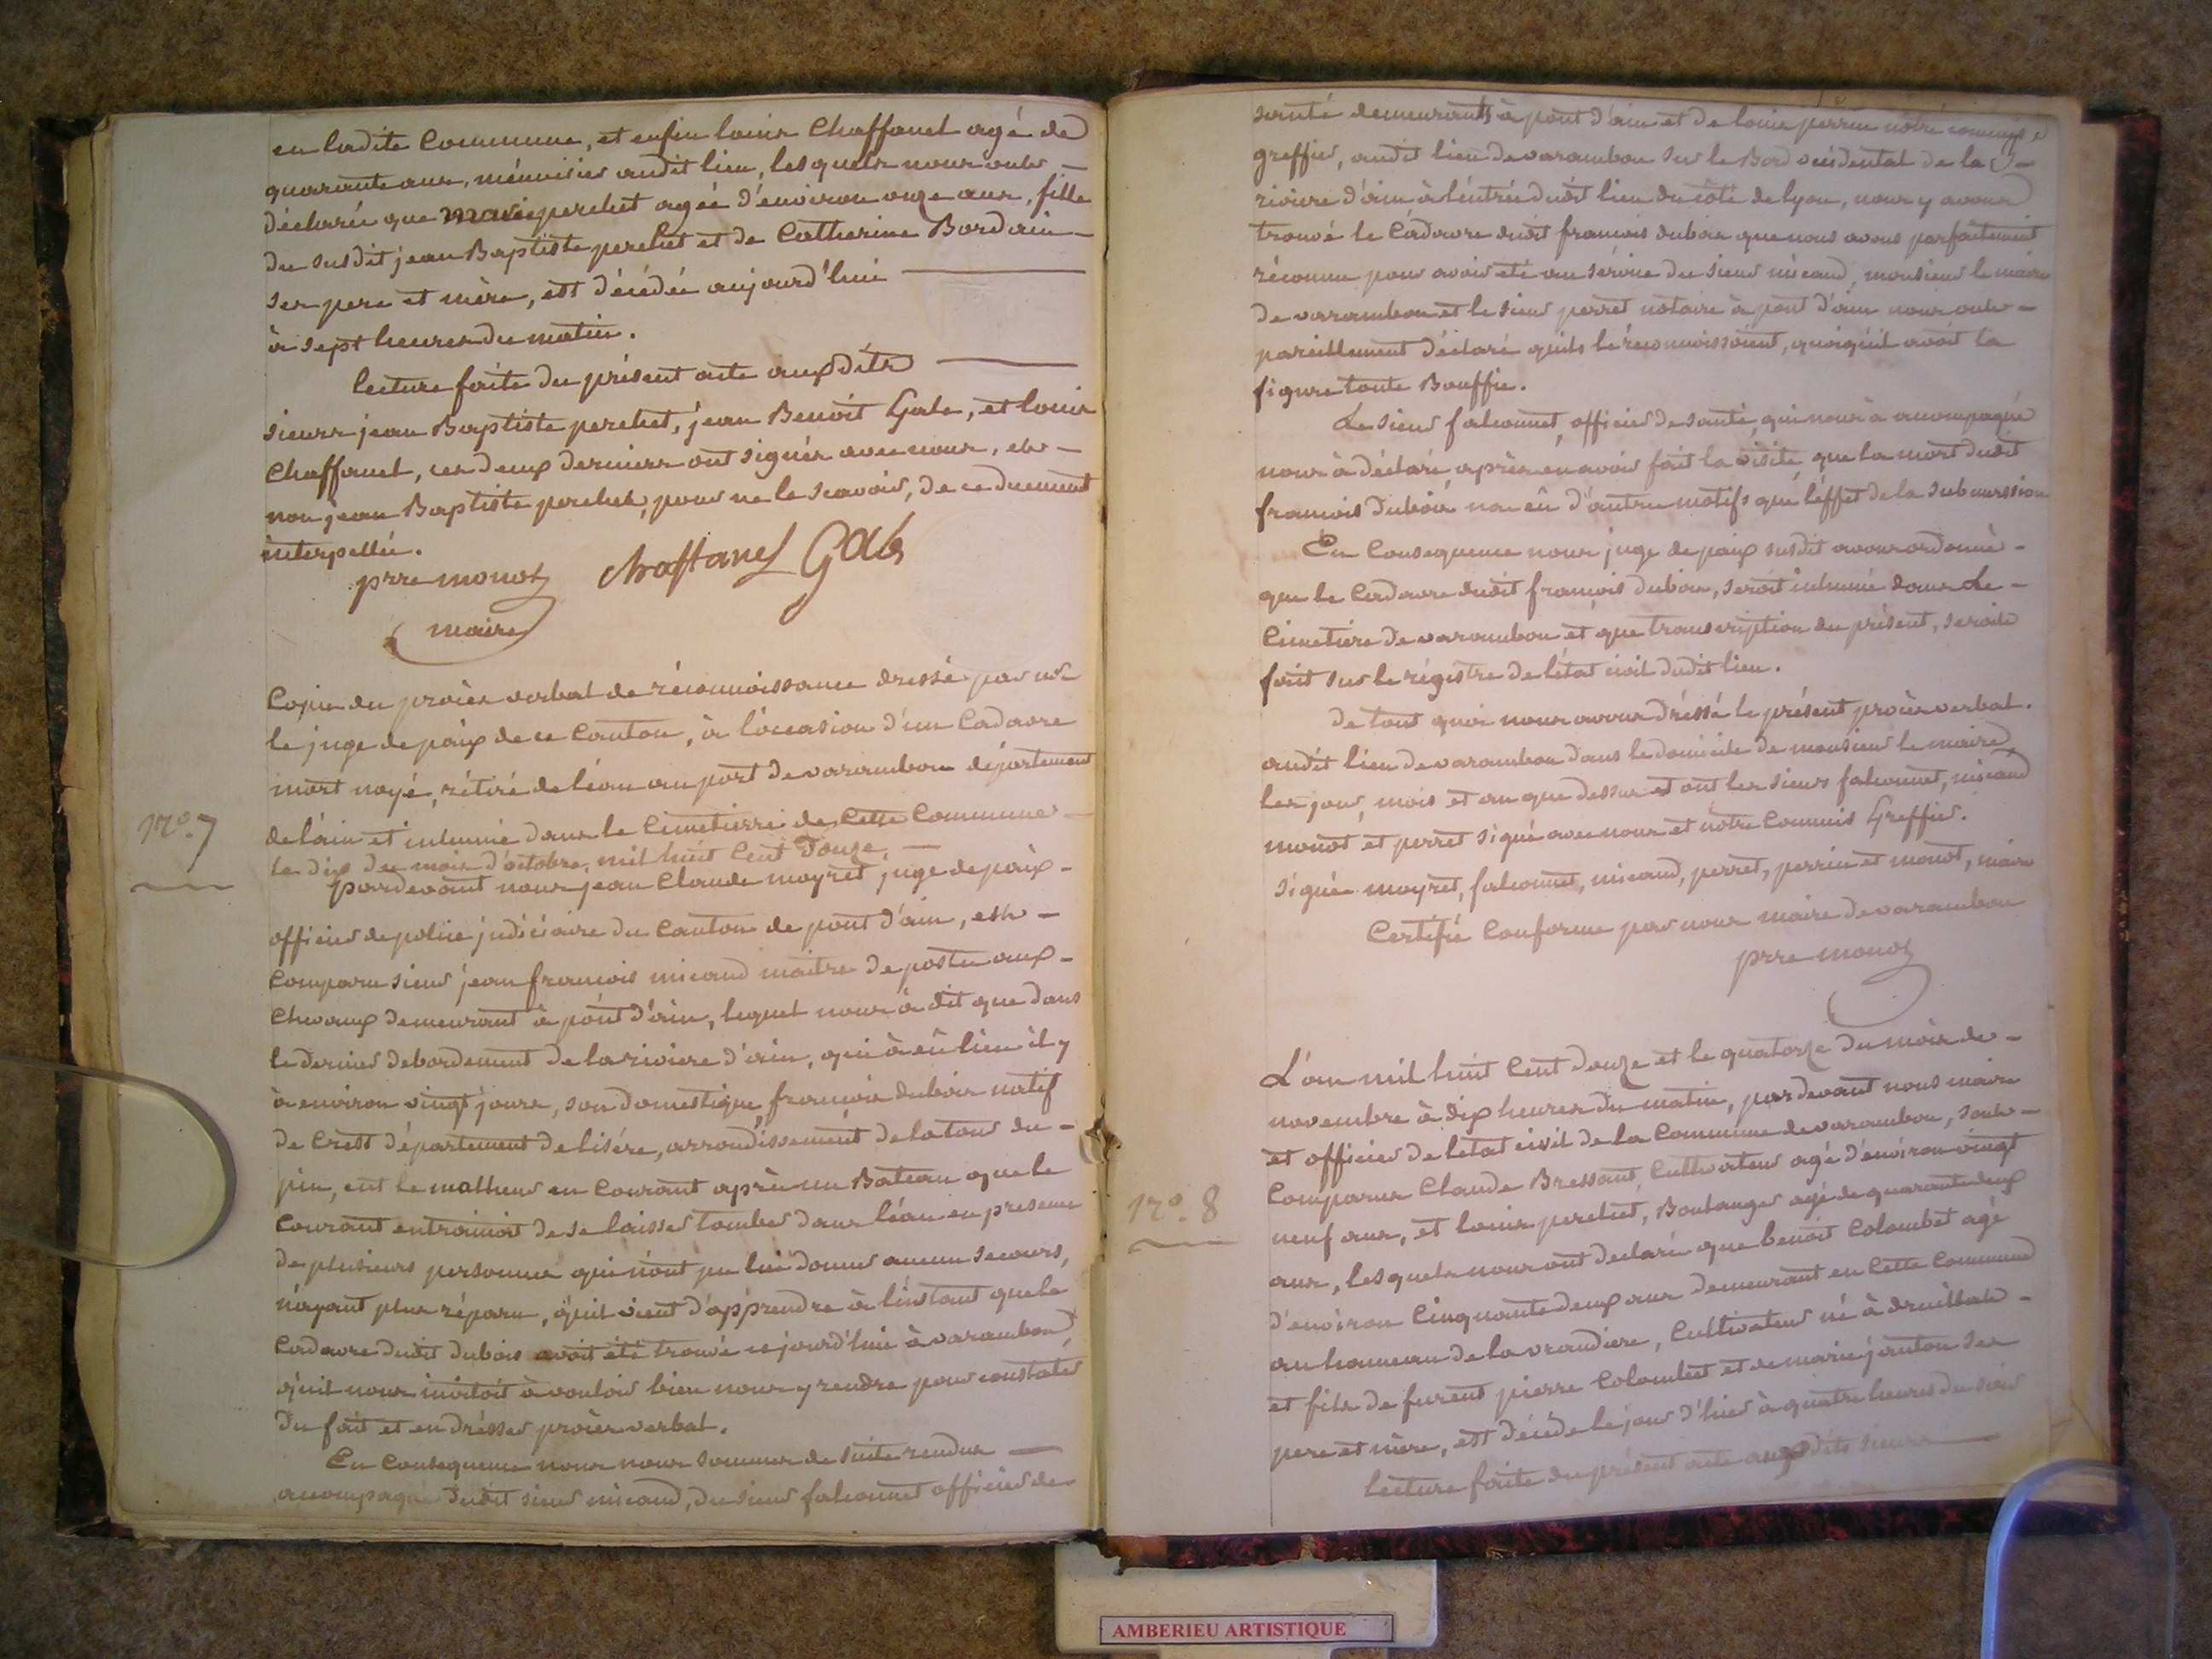 en ladite Commune, et enfin louis Chaffanel agé de
quarante ans, ménuisier audit lieu, lesquels nous ont
déclarée que marie perchet agée d'environ onze ans, fille
du susdit jean Baptiste perchet et de Catherine Bordain
ses pere et mère, est décédée aujourd'hui
à sept heures du matin.
lecture faite du présent acte auxdits
sieurs jean Baptiste perchet, jean Benoit Gale, et louis
Chaffanel, ces deux derniers ont signés avec nous, et
non jean Baptiste perchet, pour ne le scavoir, de ce duement
interpellée.
prre monot Chaffanel Gale
maire
N°. 7
Copie du procès verbal de réconnoissance dressé par mr
le juge de paix de ce Canton, à l'occasion d'un Cadavre
mort noyé, rétiré de l'éau au port de varambon département
de l'ain et inhumé dans le Cimetierre de Cette Commune
le dix du mois d'octobre, mil huit Cent Douze.
pardevant nous jean Claude moyret juge de paix
officier de police judiciaire du Canton de pont d'ain, est
Comparu sieur jean francois micaud maitre de poste aux
Chevaux demeurant à pont d'ain, lequel nous à dit que dans
le dernier debordement de la riviere d'ain, qui à eû lieu il y
à environ vingt jours, son domestique françois dubois natif
de Crest département de lisére, arrondissement de la tour du
pin, eut le malheur en Courant après un Bateau que le
Courant entrainoit de se laisser tomber dans l'éau en presence
de plusieurs personnes qui n'ont pu lui donner aucun secours,
n'ayant plus réparu, qu'il vient d'apprendre à l'instant que le
Cadavre dudit dubois avoit été trouvé cejourd'hui à varambon,
qu'il nous invitoit à vouloir bien nous y rendre pour constater
du fait et en drésser procès verbal.
En Consequence nous nous sommes de suite rendus
acompagné dudit sieur micaud, du sieur falconnet officier de
santé demeurants à pont d'ain et de louis perrin nôtre commis
greffier, audit lieu de varambon sur le Bord occidental de la
riviere d'ain à l'éntrée dudit lieu du côté de lyon, nous y avons
trouvé le Cadavre dudit francois dubois que nous avons parfaitement
réconnu pour avoir été au sérvice du sieur micaud, monsieur le maire
de varambon et le sieur perret notaire à pont d'ain nous ont
pareillement déclaré quils le réconnoissoient, quoiqu'il avoit la
figure toute Bouffie.
Le sieur falconnet, officier de santé, qui nous à acompagné
nous à déclaré, après en avoir fait la visite, que la mort dudit
francois dubois na eû d'autre motifs que l'éffet de la submerssion
En Consequence nous juge de paix susdit avons ordonné
que le Cadavre dudit françois dubois, seroit inhumé dans Le
Cimetiére de varambon et que transcription du présent, seroit
fait sur le régistre de l'état civil dudit lieu.
de tout quoi nous avons dréssé le présent procès verbal.
audit lieu de varambon dans le domicile de monsieur le maire
les jour, mois et an que dessus et ont les sieurs falconnet, micaud
monot et perret signé avec nous et nôtre Commis Greffier.
signé moyret, falconnet, micaud, perret, perrin et monot, maire
Certifié Conforme par nous maire de varambon
prre monot
N°. 8
L'an mil huit Cent douze et le quatorze du mois de
novembre à dix heures du matin, pardevant nous maire
et officier de l'etat civil de la Commune de varambon, sont
Comparus Claude Bressant, Cultivateur agé d'environ vingt
neuf ans, et louis perchet, Boulanger agé de quarante deux
ans, lesquels nous ont declaré que benoit Colombet agé
d'environ Cinquante deux ans demeurant en Cette Commune
au hameau de la vrandiere, Cultivateur né à druillat
et fils de furent pierre Colombet et de marie janton ses
pere et mère, est décédé le jour d'hier à quatre heures du soir
lecture faite du présent acte auxdits sieurs
AMBERIEU ARTISTIQUE